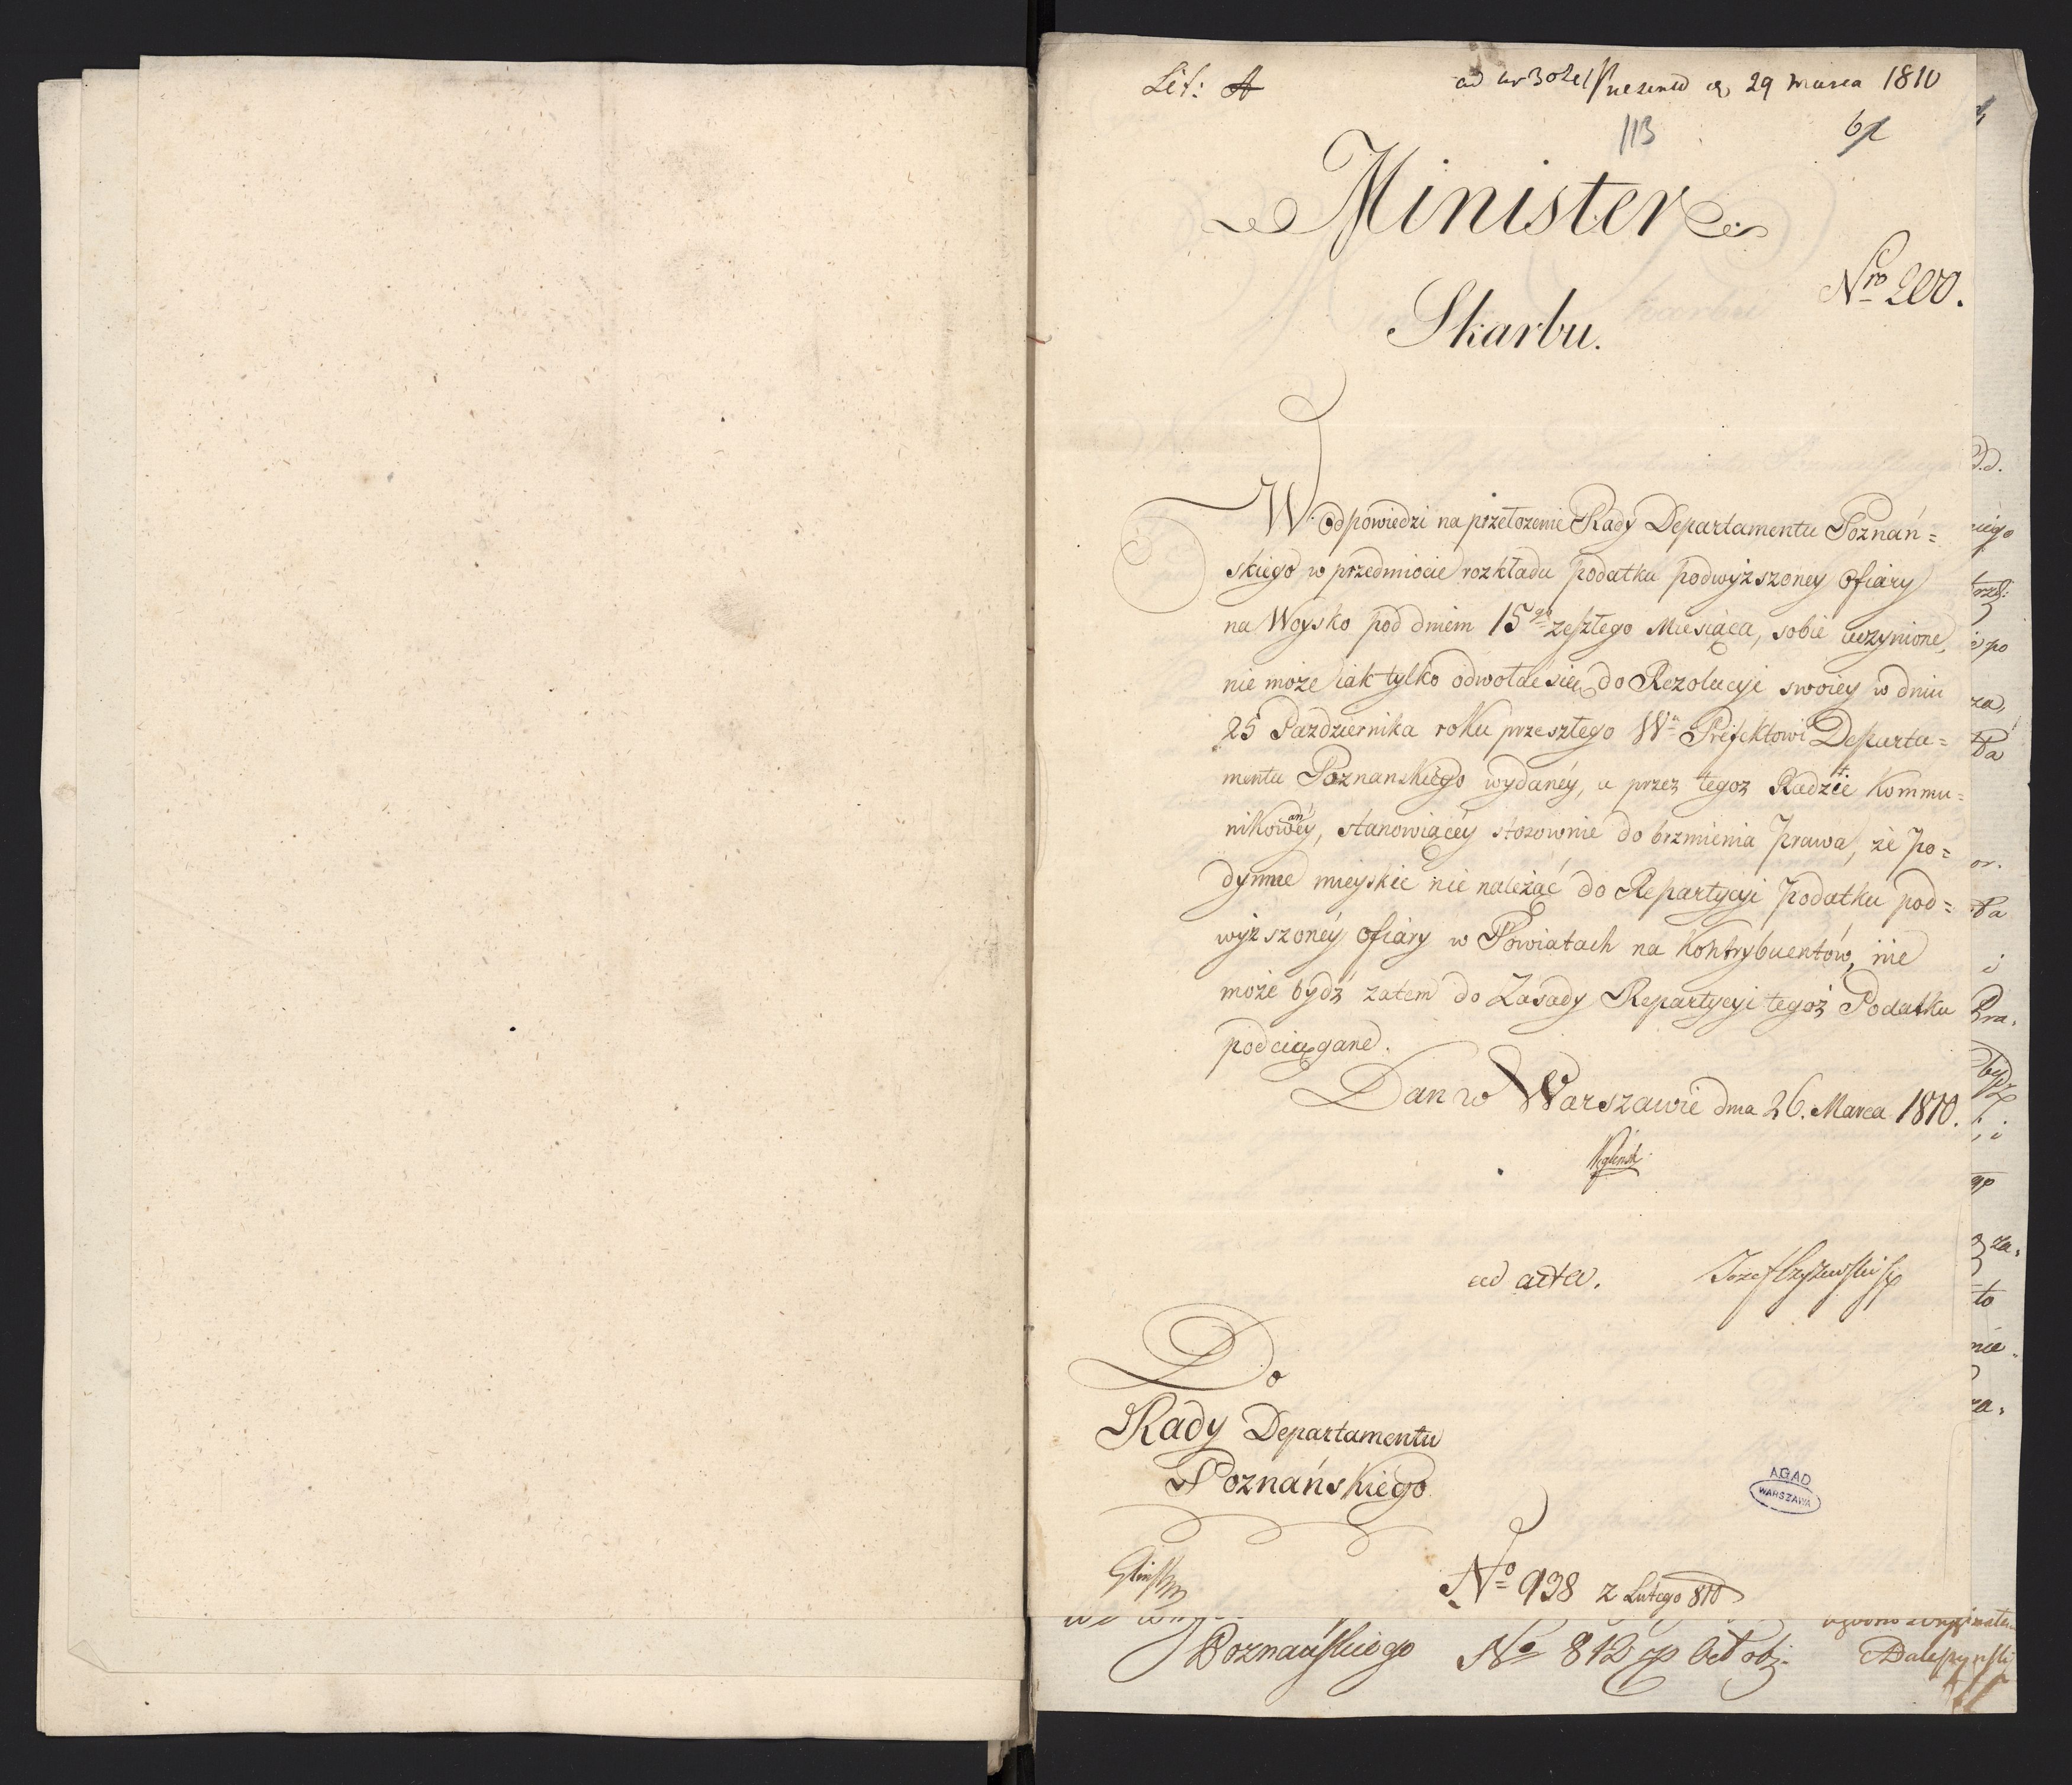 Lit: A
ad nr 302 Presend d 29 Marca 1810
113
Minister
Skarbu.
Nro 200.
W odpowiedzi na przełożenie Rady Departamentu Poznań=
skiego w przedmiocie rozkładu podatku podwyższoney Ofiary
na Woysko pod dniem 15go zeszłego Miesiąca, sobie uczynione,
nie może iak tylko odwołać się do Rezolucyi swoiey w dniu
25 Października roku przeszłego Wu Prefektowi Departa=
mentu Poznanskiego wydaney, a przez tegoż Radzie Kommu=
nikowaney, stanowiącey stosownie do brzmienia Prawa, że Po=
dymne mieyskie nie należąc do Repartycyi Podatku pod=
wyższoney Ofiary w Powiatach na Kontrybuentów, nie
może bydź zatem do Zasady Repartycyi tegoż Podatku
podciągane.
Dan w Warszawie dnia 26. Marca 1810.
Węgleński
ad acta.
Jozef Czyżewski
Do
Rady Departamentu
Poznańskiego
AGAD
WARSZAWA
Gliński
No 938 z Lutego 810
Poznańskiego No 812